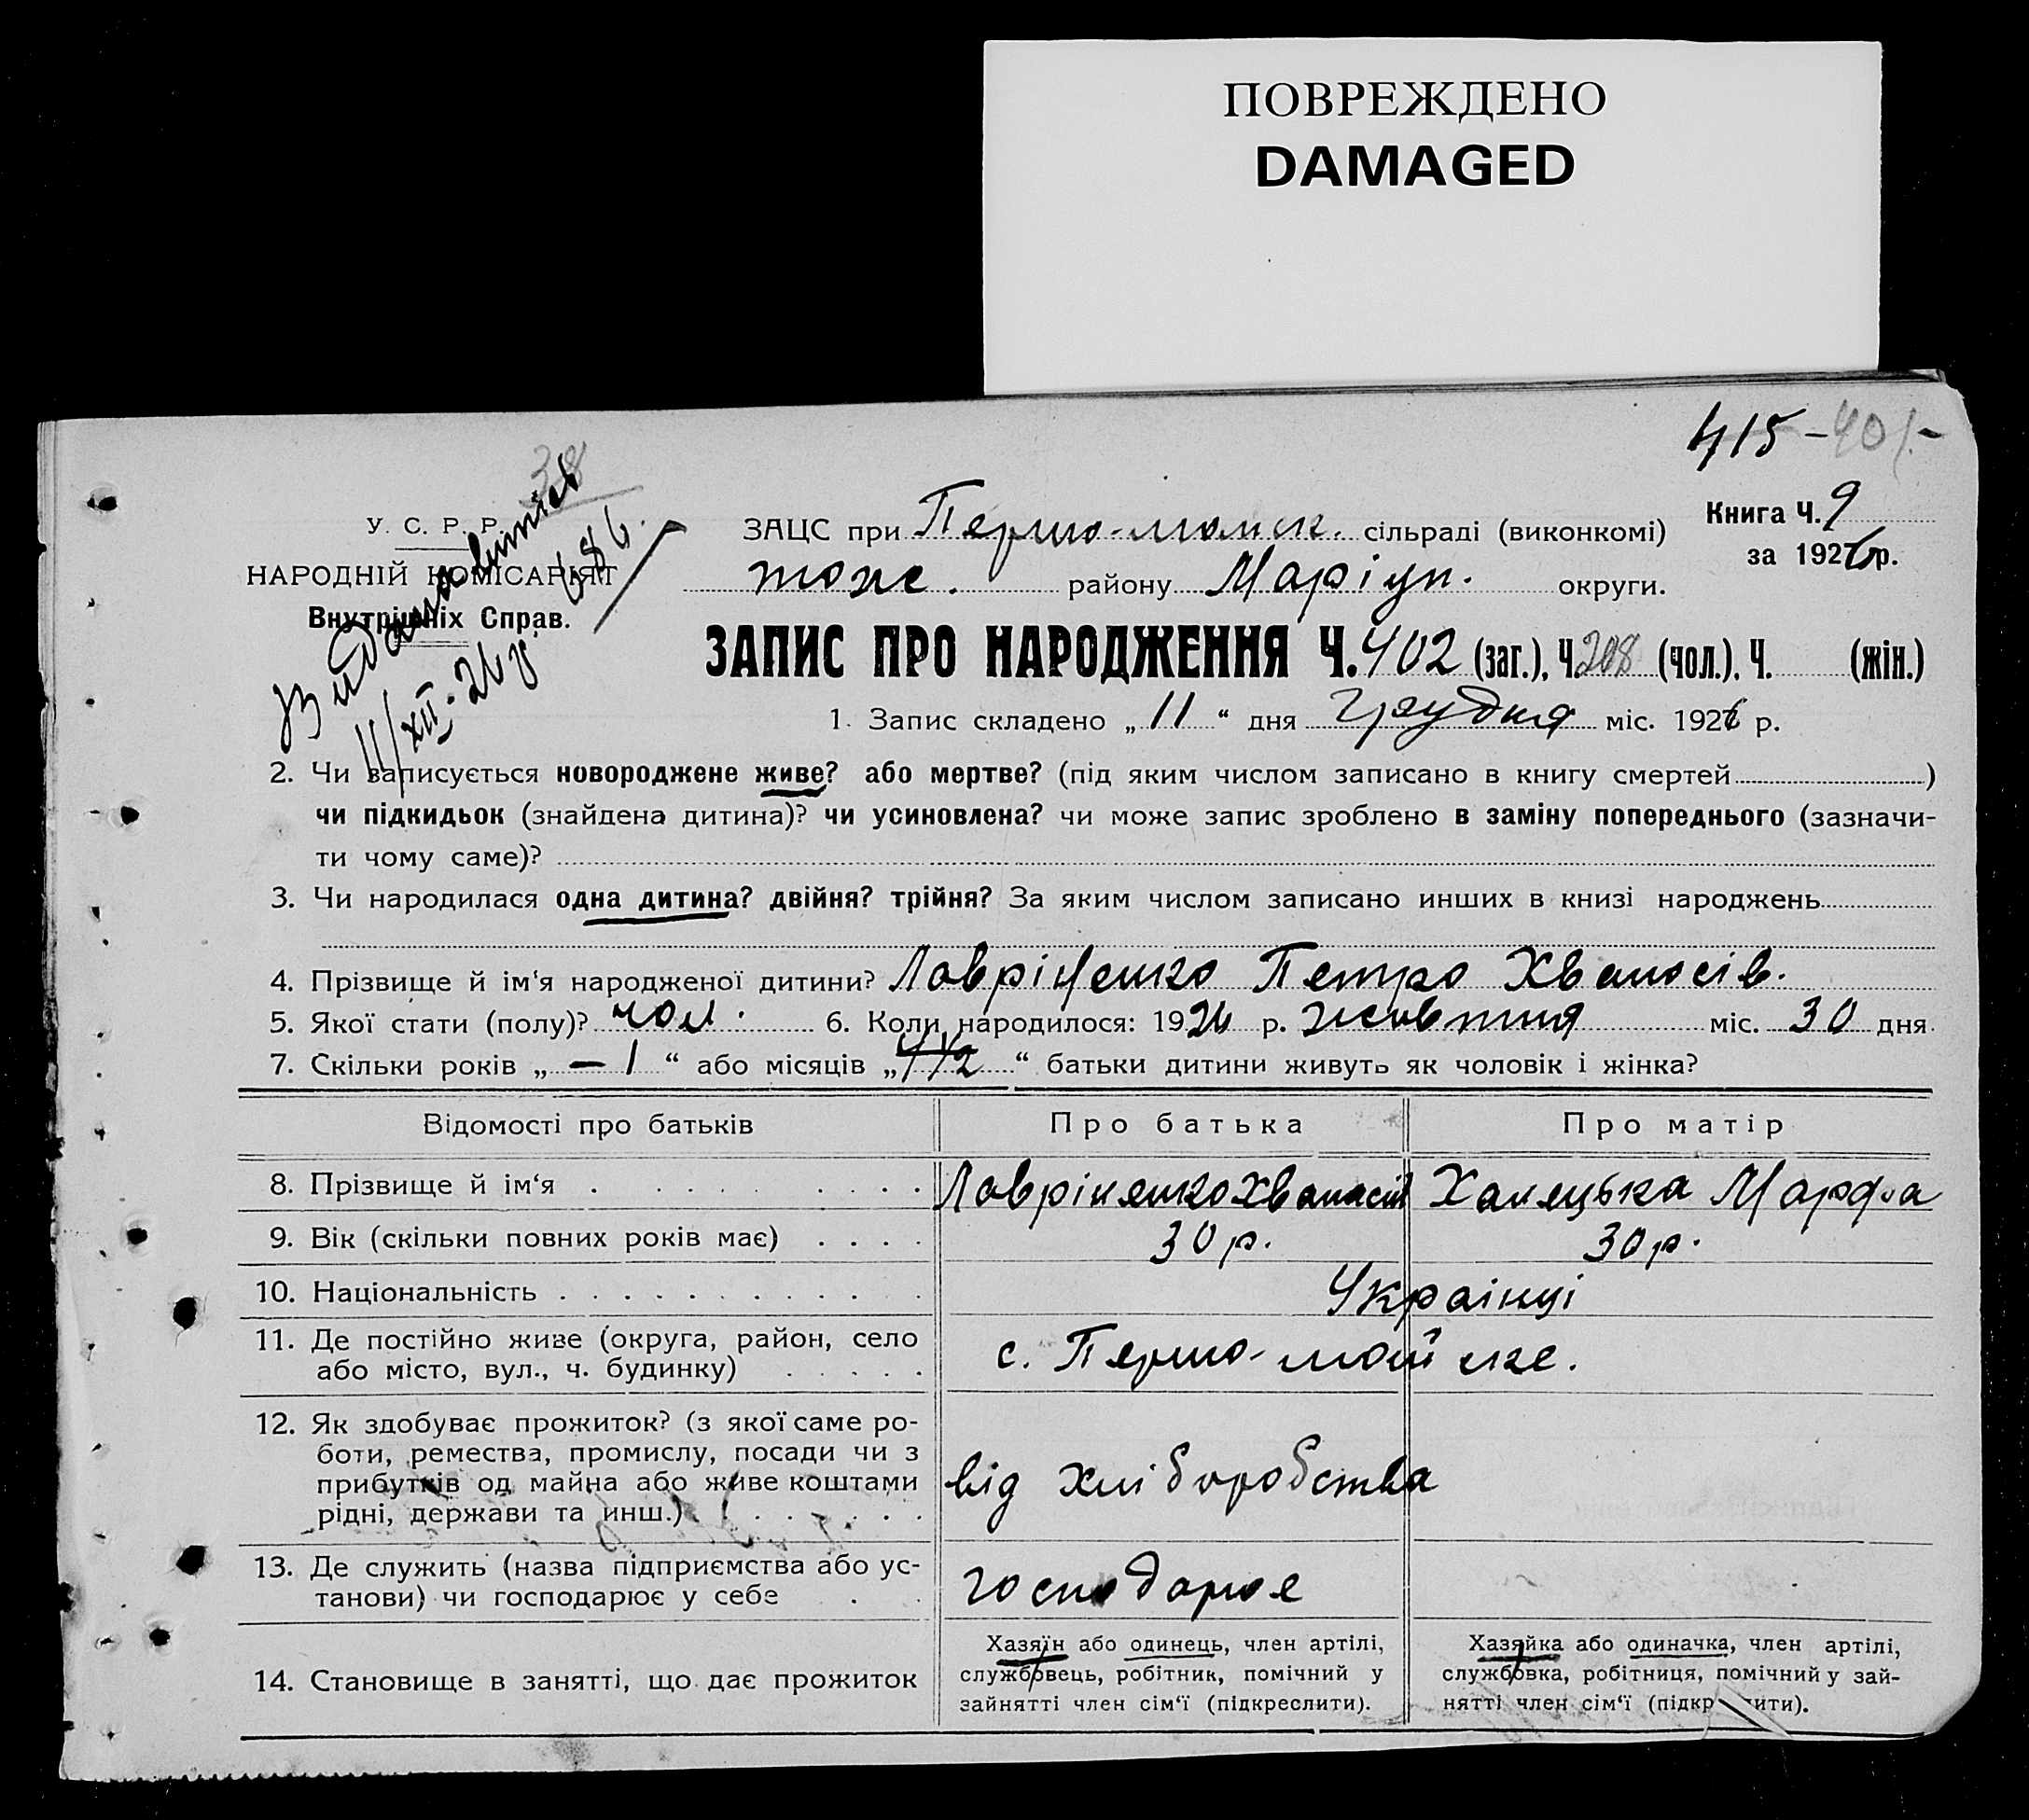 ПОВРЕЖДЕНО
DAMAGED
415 - 401 -
38
У. С. Р. Р.
НАРОДНІЙ КОМІСАРІЯТ
Внутрішніх Справ.
Видана витпісь
11/XII. 26 р. 686.
ЗАЦС при Першо-майськ. сільраді (виконкомі)
Книга Ч. 9
за 1926 р.
тоже. району Маріуп. округи.
ЗАПИС ПРО НАРОДЖЕННЯ Ч. 402 (заг.), Ч. 208 (чол.), Ч. (жін.)
1. Запис складено „ 11 “ дня грудня міс. 1926 р.
2. Чи записується новороджене живе? або мертве? (під яким числом записано в книгу смертей )
чи підкидьок (знайдена дитина)? чи усиновлена? чи може запис зроблено в заміну попереднього (зазначи-
ти чому саме)?
3. Чи народилася одна дитина? двійня? трійня? За яким числом записано инших в книзі народжень
4. Прізвище й ім‘я народженої дитини? Лавріненко Петро Хванасів.
5. Якої стати (полу)? чол. 6. Коли народилося: 1926 р. жовтня міс. 30 дня
7. Скільки років „ — 1 “ або місяців „ 1 1/2 “ батьки дитини живуть як чоловік і жінка?
Відомості про батьків Про батька Про матір
8. Прізвище й ім‘я Лавріненко Хванасій Халецька Марфа
9. Вік (скільки повних років має) 30 р. 30 р.
10. Національність Украінці
11. Де постійно живе (округа, район, село
або місто, вул., ч. будинку) с. Першо-майське.
12. Як здобуває прожиток? (з якої саме ро-
боти, ремества, промислу, посади чи з
прибутків од майна або живе коштами
рідні, держави та инш.) від хліборобства
13. Де служить (назва підприємства або ус-
танови) чи господарює у себе господарює
14. Становище в занятті, що дає прожиток
Хазяїн або одинець, член артілі,
службовець, робітник, помічний у
зайнятті член сім‘ї (підкреслити).
Хазяйка або одиначка, член артілі,
службовка, робітниця, помічний у зай-
нятті член сім‘ї (підкреслити).